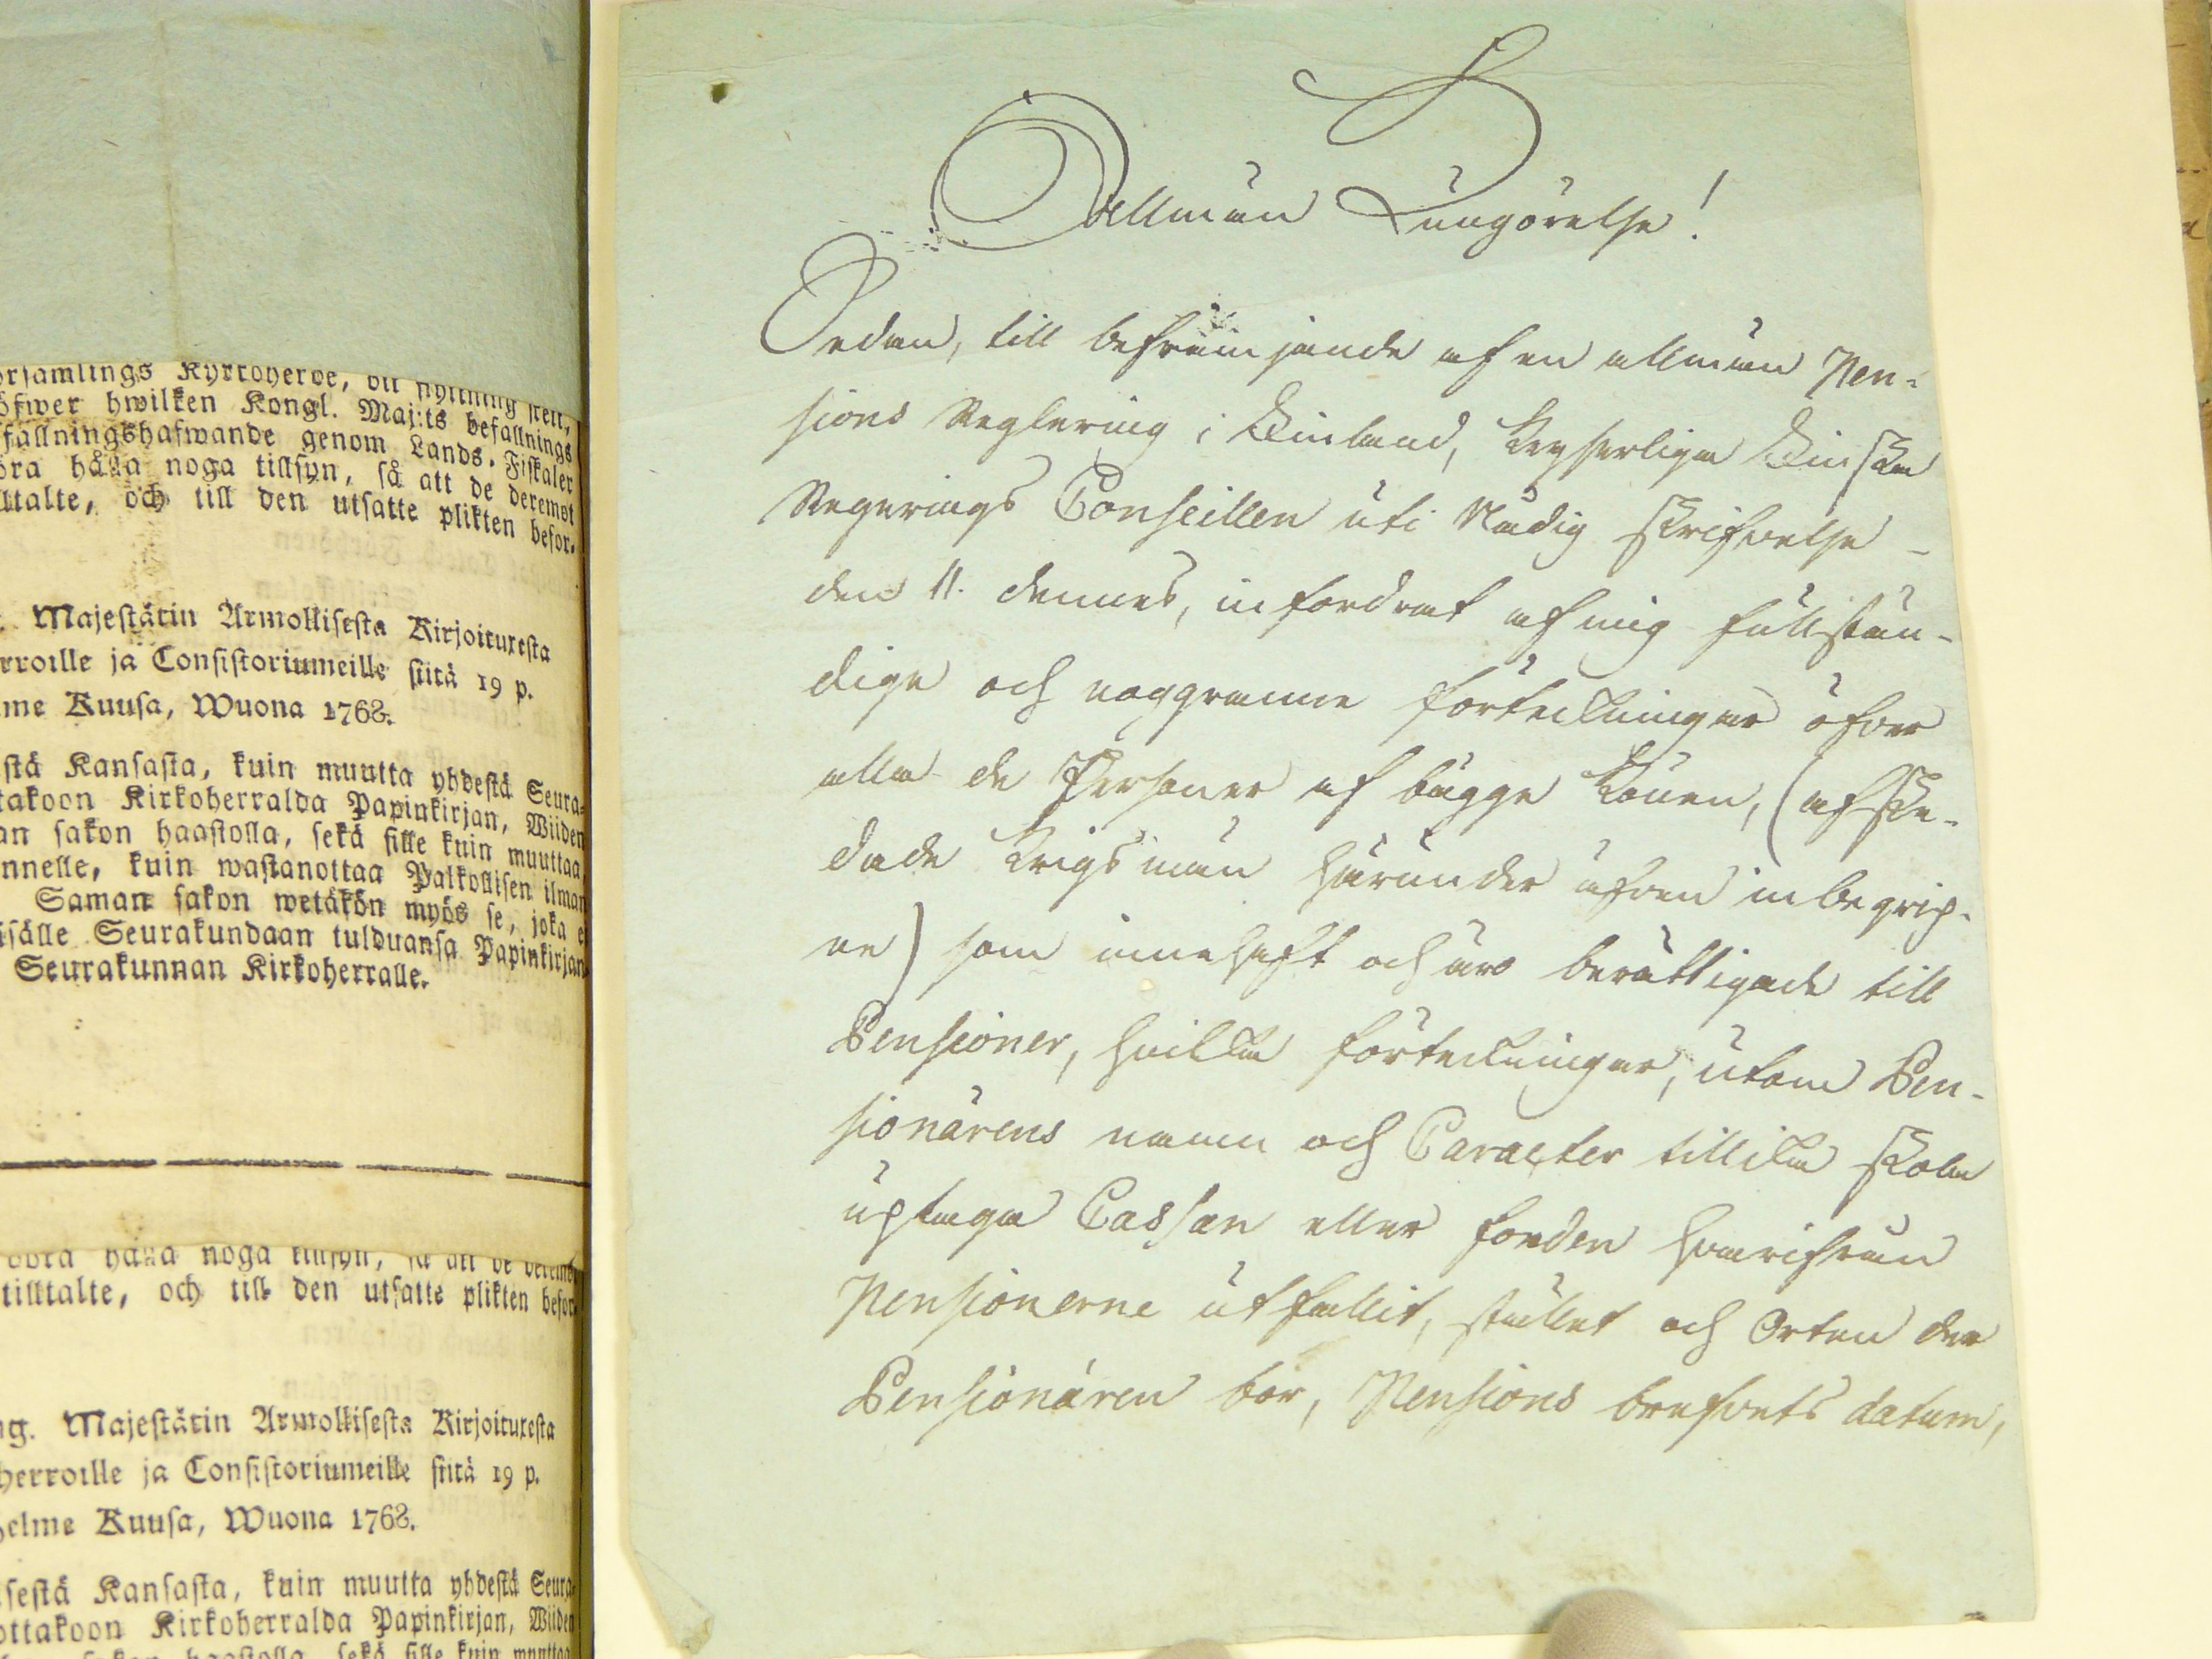 örsamlings Kyrkoherde,
öfwer hwilken Kongl. Maj:ts befallnings
fallningshafwande genom Lands-Fiskaler
öra hålla noga tillsyn, så att de deremot
lltalte, och till den utsatte plikten befor-
. Majestätin Armollisesta Kirjoituxesta
rroille ja Consistoriumeille siitä 19 p.
me Kuusa, Wuona 1768.
stä Kansasta, kuin muutta yhdestä Seura-
takoon Kirkoherralda Papinkirjan, Wiiden
an sakon haastolla, sekä sille kuin muuttaa
nnelle, kuin wastanottaa Palkollisen ilman
Saman sakon wetäkön myös se, joka e
isälle Seurakundaan tulduansa Papinkirjan
Seurakunnan Kirkoherralle.
hålla noga tillsyn, så att de deremot
tilltalte, och till den utsatte plikten befor-
ng. Majestätin Armollisesta Kirjoituxesta
herroille ja Consistoriumeille siitä 19 p.
helme Kuusa, Wuona 1768.
sestä Kansasta, kuin muutta yhdestä Seura-
ottakoon Kirkoherralda Papinkirjan, Wiiden
sakon haastolla, sekä sille kuin muuttaa
Allmän Kungörelse!
Sedan, till befrämjande af en allmän Pen-
sions Reglering i Finland, Keyserliga Finska
Regerings Conseillen uti Nådig skrifvelse
den 11. dennes, infordrat af mig fullstän-
dige och noggranne förteckningar öfver
alla de Personer af bägge Könen, (afske-
dade Krigsmän härunder äfven inbegrip-
ne) som innehaft och äro berättigade till
Pensioner, hvilka förteckningar, utom Pen-
sionärens namn och Caracter tillika skola
uptaga Cassan eller fonden hvarifrån
Pensionerne utfallit, stället och Orten der
Pensionären bor, Pensions brefvets datum,